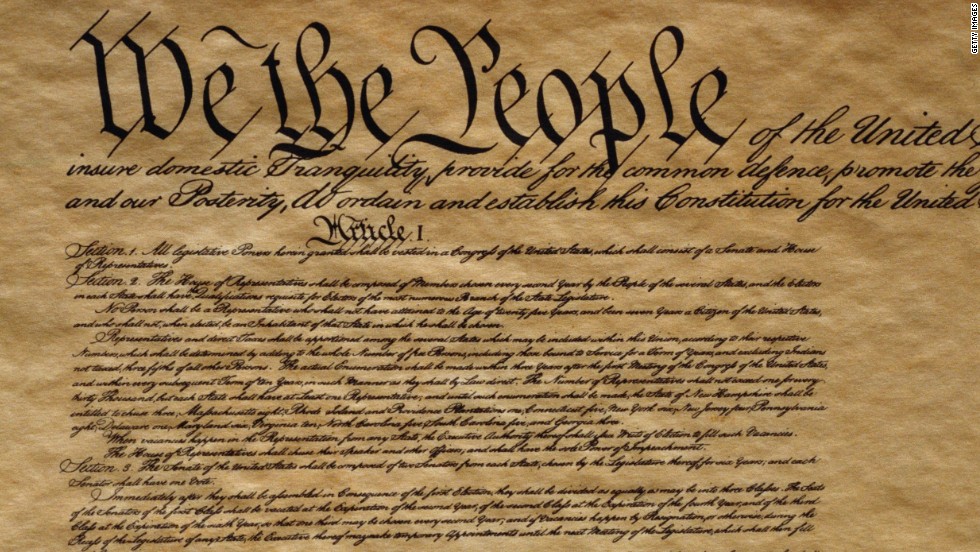 We the People of the United
insure domestic Tranquility, provide for the common defence, promote the
and our Posterity, do ordain and establish this Constitution for the United
Article I.
Section. 1. All legislative Powers herein granted shall be vested in a Congress of the United States, which shall consist of a Senate and House
of Representatives.
Section. 2. The House of Representatives shall be composed of Members chosen every second Year by the People of the several States, and the Electors
in each State shall have the Qualifications requisite for Electors of the most numerous Branch of the State Legislature.
No Person shall be a Representative who shall not have attained to the Age of twenty five Years, and been seven Years a Citizen of the United States,
and who shall not, when elected, be an Inhabitant of that State in which he shall be chosen.
Representatives and direct Taxes shall be apportioned among the several States which may be included within this Union, according to their respective
Numbers, which shall be determined by adding to the whole Number of free Persons, including those bound to Service for a Term of Years, and excluding Indians
not taxed, three fifths of all other Persons. The actual Enumeration shall be made within three Years after the first Meeting of the Congress of the United States,
and within every subsequent Term of ten Years, in such Manner as they shall by Law direct. The Number of Representatives shall not exceed one for every
thirty Thousand, but each State shall have at Least one Representative; and until such enumeration shall be made, the State of New Hampshire shall be
entitled to chuse three, Massachusetts eight, Rhode Island and Providence Plantations one, Connecticut five, New York six, New Jersey four, Pennsylvania
eight, Delaware one, Maryland six, Virginia ten, North Carolina five, South Carolina five, and Georgia three.
When vacancies happen in the Representation from any State, the Executive Authority thereof shall issue Writs of Election to fill such Vacancies.
The House of Representatives shall chuse their Speaker and other Officers; and shall have the sole Power of Impeachment.
Section. 3. The Senate of the United States shall be composed of two Senators from each State, chosen by the Legislature thereof, for six Years; and each
Senator shall have one Vote.
Immediately after they shall be assembled in Consequence of the first Election, they shall be divided as equally as may be into three Classes. The Seats
of the Senators of the first Class shall be vacated at the Expiration of the second Year, of the second Class at the Expiration of the fourth Year, and of the third
Class at the Expiration of the sixth Year, so that one third may be chosen every second Year; and if Vacancies happen by Resignation, or otherwise, during the
Recess of the Legislature of any State, the Executive thereof may make temporary Appointments until the next Meeting of the Legislature, which shall then fill
GETTY IMAGES